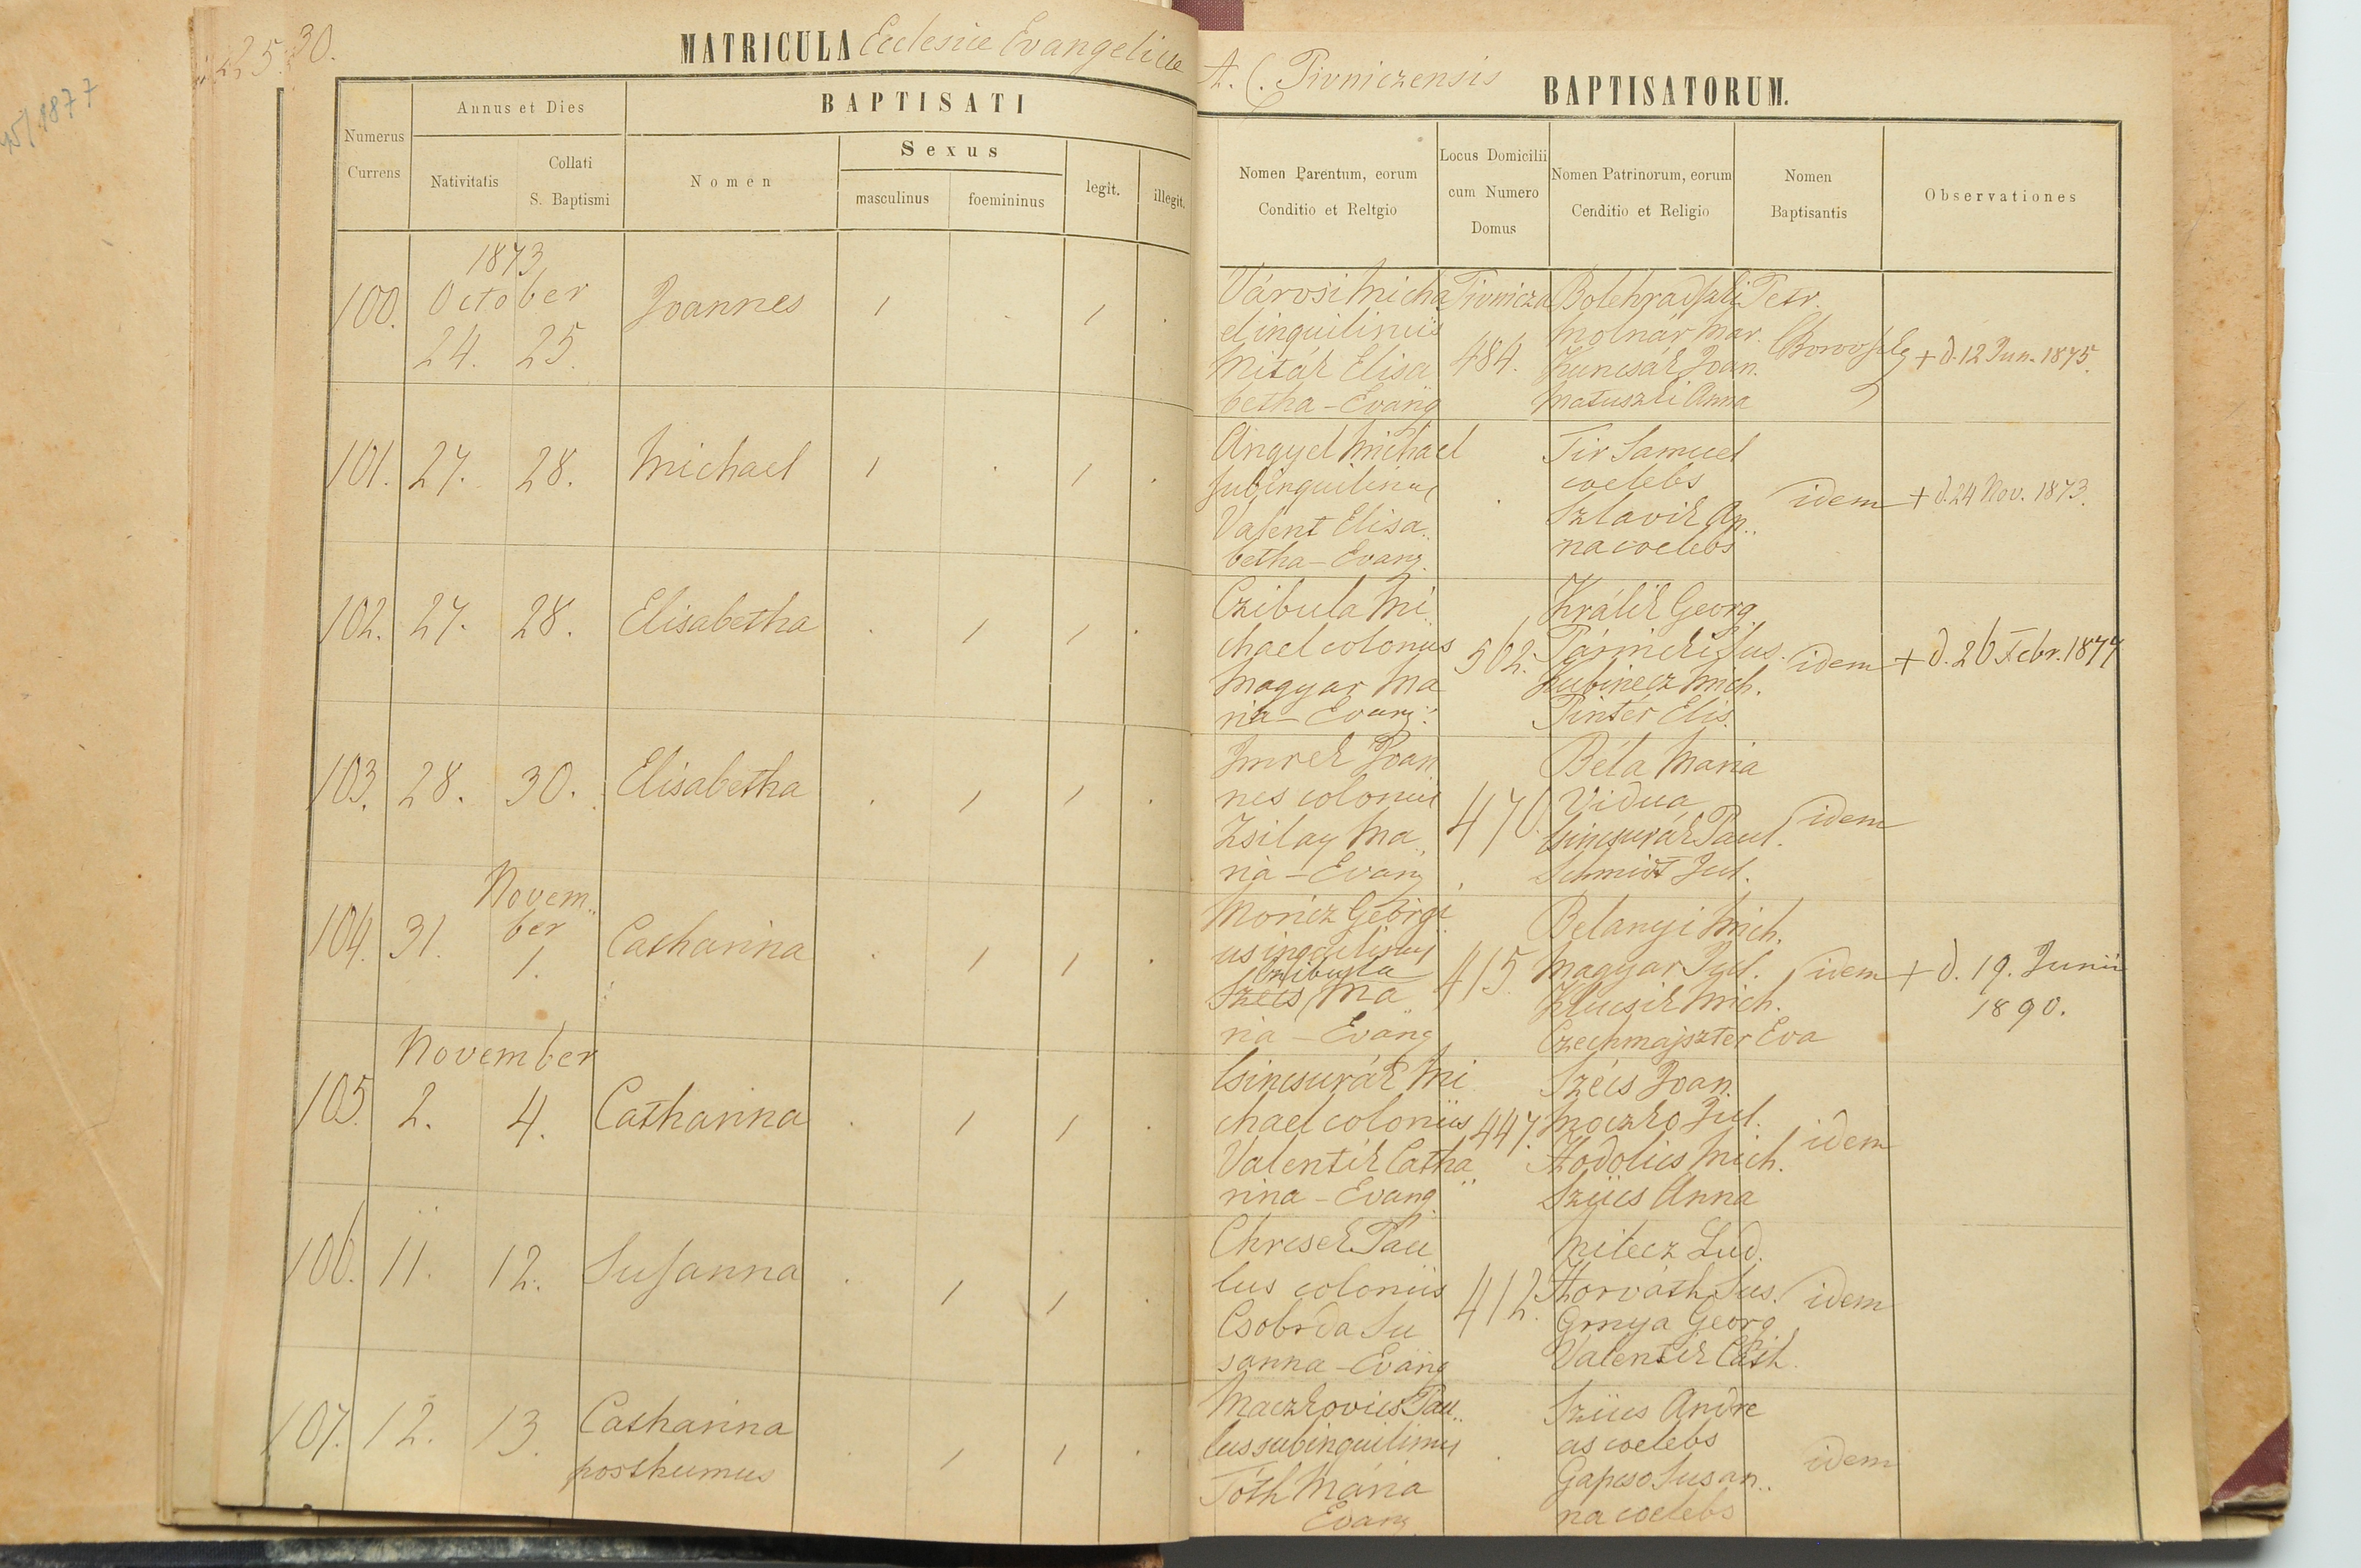 25. 30.
MATRICULA Ecclesiae Evangelicae
A. C. Pivniczensis BAPTISATORUM.
1877
Numerus Currens
Annus et Dies
Nativitatis
Collati S. Baptismi
BAPTISATI
Nomen
Sexus
masculinus
foemininus
legit.
illegit.
Nomen Parentum, eorum
Conditio et Reltgio
Locus Domicilii
cum Numero
Domus
Nomen Patrinorum, eorum
Cenditio et Religio
Nomen
Baptisantis
Observationes
1873
October
100. 24. 25. Joannes
Városi Micha
el inquilinus
Miták Elisa
betha - Evang
Pivnicza
484.
Bolehradszki Petr.
Molnár Mar.
Kuncsák Joan.
Matuszki Anna
+ d. 12 Jun. 1875.
101. 27. 28. Michael
Angyel Michael
Subinquilinus
Valent Elisa
betha - Evang.
Tir Samuel
coelebs
Szlavik An
na coelebs
idem
+ d. 24 Nov. 1873.
102. 27. 28. Elisabetha
Czibula Mi
chael colonus
Magyar Ma
ria - Evang.
502.
Králik Georg.
Sus.
Kubinecz Mich.
Pintér Elis.
idem
+ d. 26 Febr. 1877
103. 28. 30. Elisabetha
Imrek Joan
nes colonus
Zsilay Ma
ria - Evang
470.
Béla Maria
Vidua
Csincsurák Paul.
Schmidt Jul.
idem
Novem
ber
104. 31. 1. Catharina
Móricz Georgi
us inquilinus
Czibula
Szécs Ma
ria - Evang
415.
Belanyi Mich.
Magyar Jul.
Klucsik Mich.
Czechmajszter Eva
idem
+ d. 19. Junii
1890.
November
105. 2. 4. Catharina
Csincsurák Mi
chael colonus
Valentik Catha
rina - Evang.
447.
Szécs Joan.
Moczko Jul.
Hodolics Mich.
Szücs Anna
idem
106. 11. 12. Susanna
Chrcsek Pau
lus colonus
Csobrda Su
sanna - Evang
412.
Milecz Lud.
Horváth Sus.
Grnya Georg
Valentik Cath.
idem
107. 12. 13. Catharina
posthumus
Maczkovics Pau
lus subinquilinus
Tóth Mária
Evang
Szücs Andre
as coelebs
Gapcso Susan
na coelebs
idem